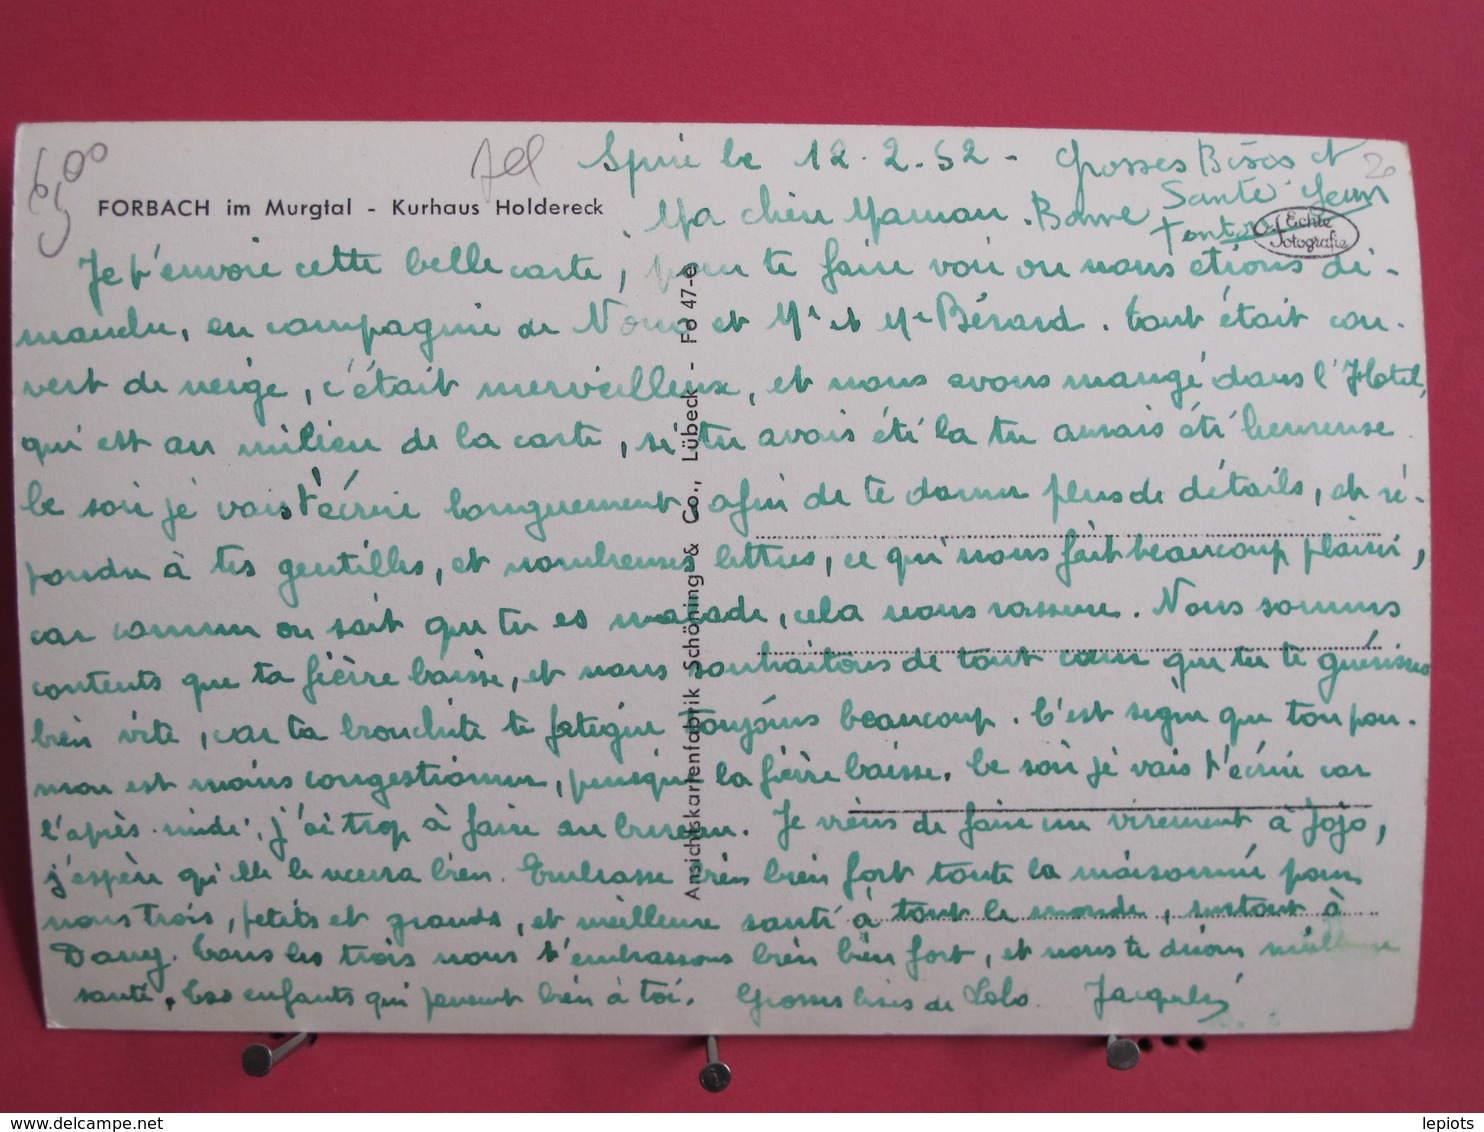 6,00
All
Spire le 12.2.52 - Grosses Bises et
20
Santé Jean
FORBACH im Murgtal - Kurhaus Holdereck
Ma chère Maman. Bonne
Tonton
Echte Fotografie
Je t'envoie cette belle carte, pour te faire voir ou nous étions di-
manche, en compagnie de Nour et Mr et Me Bérard. tout était cou-
vert de neige, c'était merveilleux, et nous avons mangé dans l'Hotel,
qui est au milieu de la carte, si tu avais été la tu aurais été heureuse.
le soir je vais t'écrire longuement afin de te donner plus de détails, et ré-
pondre à tes gentilles, et nombreuses lettres, ce qui nous fait beaucoup plaisir,
car comme on sait que tu es malade, cela nous rassure. Nous sommes
contents que ta fièvre baisse, et nous souhaitons de tout cœur que tu te guérisses
bien vite, car ta bronchite te fatigue toujours beaucoup. C'est signe que ton pou-
mon est moins congestionné, puisque la fièvre baisse. le soir je vais t'écrire car
l'après-midi, j'ai trop à faire au bureau. Je viens de faire un virement à Jojo,
j'espère qu'elle le recevra bien. Embrasse bien bien fort toute la maisonnée pour
nous trois, petits et grands, et meilleure santé à tout le monde, surtout à
Dany. Tous les trois nous t'embrassons bien bien fort, et nous te disons meilleure
santé, tes enfants qui pensent bien à toi. Grosses bises de Lolo. Jacqueline
Ansichtskartenfabrik Schöning & Co., Lübeck - Fo 47-e
www.delcampe.net
lepiots